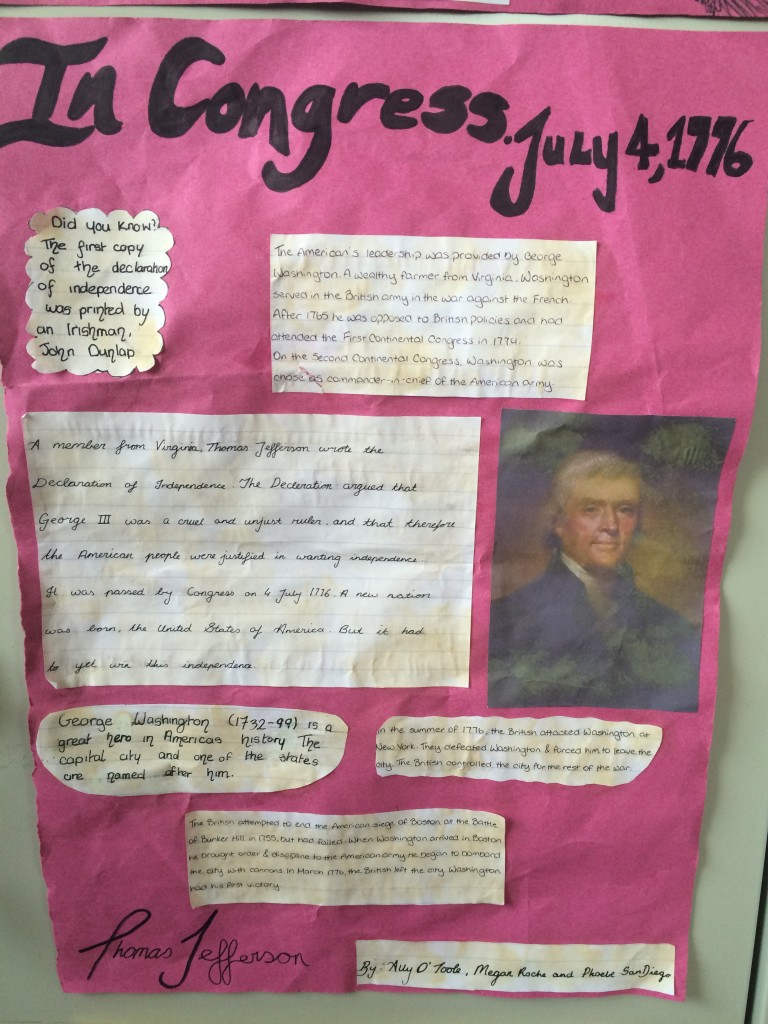 In Congress. July 4, 1776
Did you know?
The first copy
of the declaration
of independence
was printed by
an Irishman,
John Dunlap
The American's leadership was provided by George
Washington. A wealthy farmer from Virginia. Washington
served in the British army in the war against the French.
After 1765 he was opposed to British policies and had
attended the First Continental Congress in 1774.
On the Second Continental Congress, Washington was
chose as commander-in-chief of the American army.
A member from Virginia, Thomas Jefferson wrote the
Declaration of Independence. The Decleration argued that
George III was a cruel and unjust ruler, and that therefore
the American people were justified in wanting independence.
It was passed by Congress on 4 July 1776. A new nation
was born, the United States of America. But it had
to yet win this independence.
George Washington (1732-99) is a
great hero in America's history The
capital city and one of the states
are named after him.
In the summer of 1776, the British attacked Washington at
New York. They defeated Washington & forced him to leave the
city. The British controlled the city for the rest of the war.
The British attempted to end the American siege of Boston at the Battle
of Bunker Hill in 1755, but had failed. When Washington arrived in Boston
he brought order & discipline to the American army. He began to bombard
the city with cannons. In March 1776, the British left the city. Washington
had his first victory.
Thomas Jefferson
By: Ally O'Toole, Megan Roche and Phoebe SanDiego